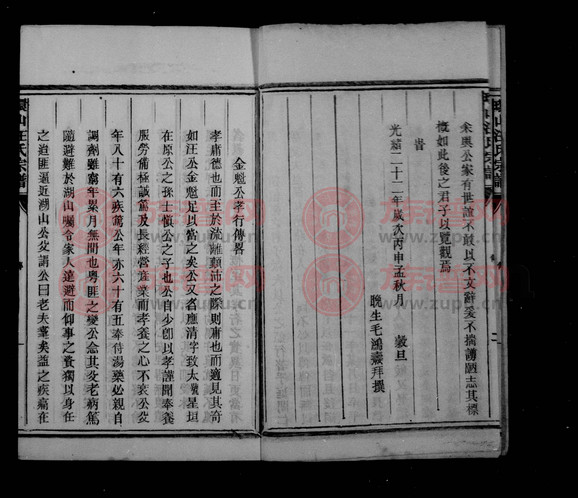 余與公家有世誼不敢以不文辭爰不揣謭陋志其標
概如此後之君子以覽觀焉
旹
光緒二十二年歲次丙申孟秋月 穀旦
晚生毛鴻燾拜撰
二
環山汪氏宗譜
金魁公孝行傳贊
孝庸德也而至於流離顛沛之際則庸也而適見其奇
如汪公金魁足以當之矣公又名應清字致太號星垣
在原公之孫士愼公之子也公自少卽以孝謹聞奉養
服勞備極誠篤及長經營生業而孝養之心不衰公父
年八十有六疾篤公年亦六十有五奉侍湯藥必親自
調劑雖窮年累月無間也粤匪之變公念其父老病篤
隨避難於湖山囑令家人遠避而仰事之責獨以身任
之迨匪逼近湖山公父謂公曰老夫耄矣益之疾痛在
一
族譜網
www.zupu.cn